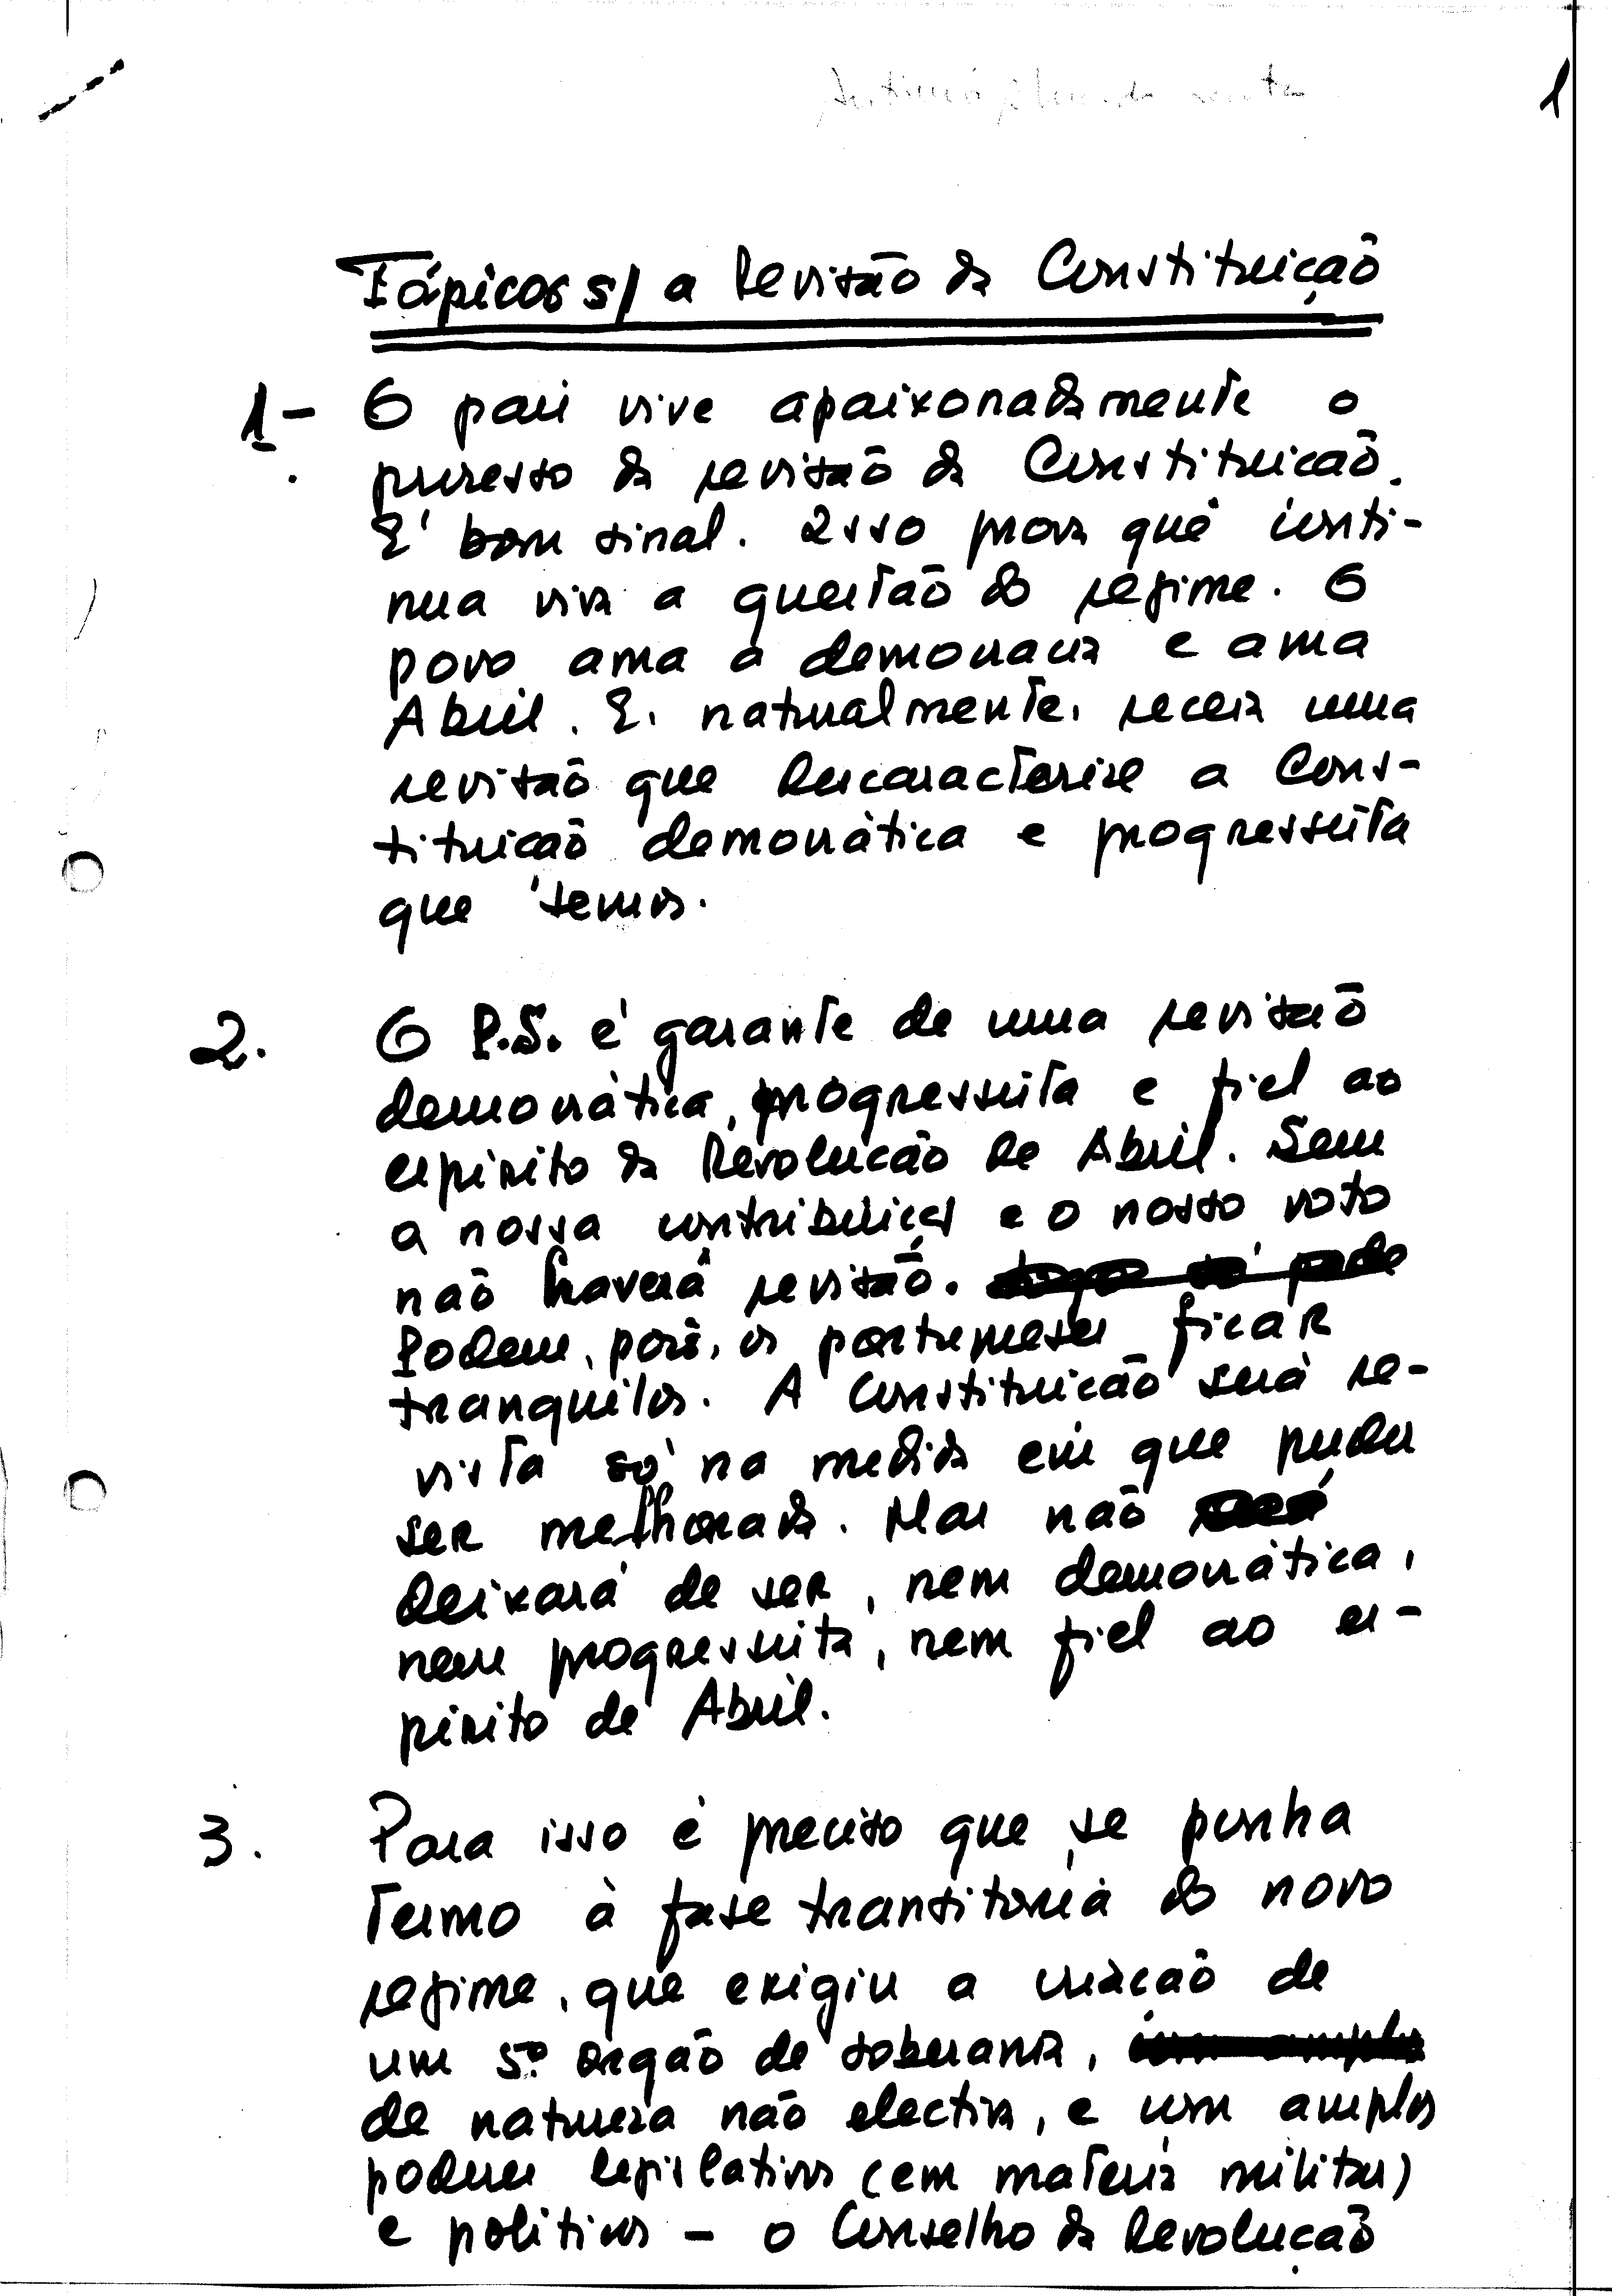 1
Tópicos s/ a Revisão da Constituição
1- O país vive apaixonadamente o
processo da revisão da Constituição.
É bom sinal. Isso prova que conti-
nua viva a questão do regime. O
povo ama a democracia e ama
Abril. E, naturalmente, receia uma
revisão que descaracterize a Cons-
tituição democrática e progressista
que temos.
2. O P.S. é garante de uma revisão
democrática, progressista e fiel ao
espírito da Revolução de Abril. Sem
a nossa contribuição e o nosso voto
não haverá revisão.
Podem, pois, os portugueses ficar
tranquilos. A Constituição será re-
vista só na medida em que puder
ser melhorada. Mas não
deixará de ser, nem democrática,
nem progressista, nem fiel ao es-
pírito de Abril.
3. Para isso é preciso que se ponha
termo à fase transitória do novo
regime, que exigiu a criação de
um 5º orgão de soberania,
de natureza não electiva, e com amplos
poderes legislativos (em matéria militar)
e politicos - o Conselho da Revolução